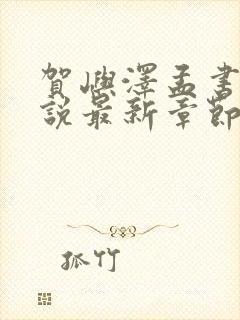 賀嶼澤孟書
說最新章節
孤竹